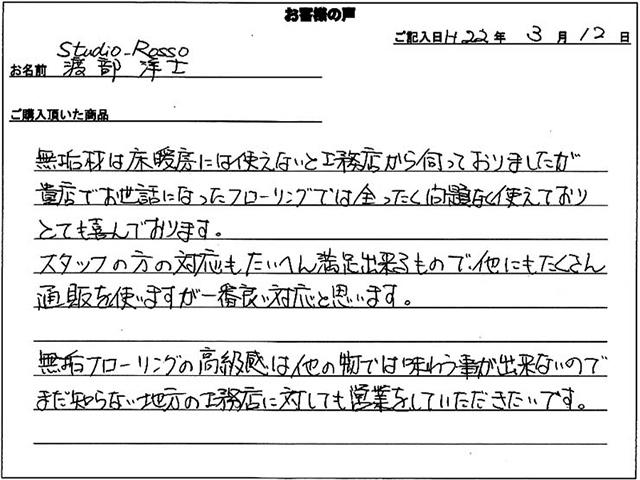 お客様の声
ご記入日 H22年 3月12日
Studio-Rosso
お名前 渡部洋士
ご購入頂いた商品
無垢材は床暖房には使えないと工務店から伺っておりましたが
貴店でお世話になったフローリングでは全ったく問題なく使えており
とても喜んでおります。
スタッフの方の対応もたいへん満足出来るもので、他にもたくさん
通販を使いますが一番良い対応と思います。
無垢フローリングの高級感は他の物では味わう事が出来ないので
まだ知らない地方の工務店に対しても営業をしていただきたいです。